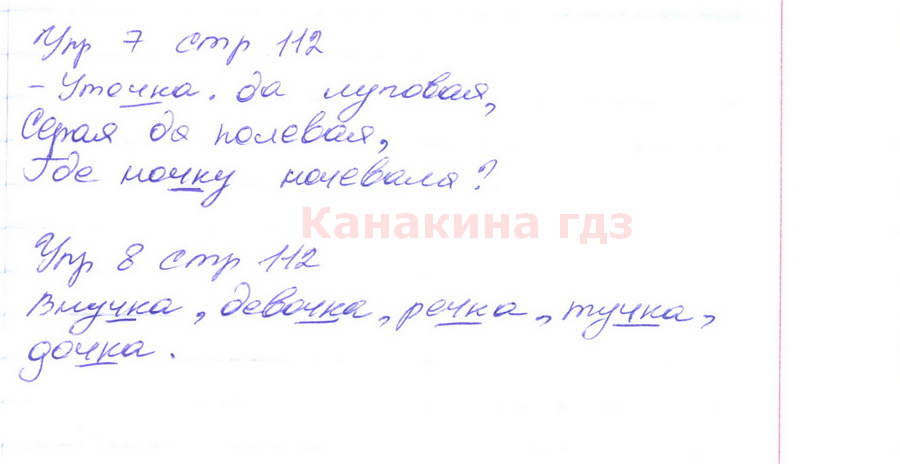 Упр 7 стр 112
- Уточка. да луговая,
Серая да полевая,
Где ночку ночевала?
Канакина гдз
Упр 8 стр 112
Внучка, девочка, речка, тучка,
дочка.